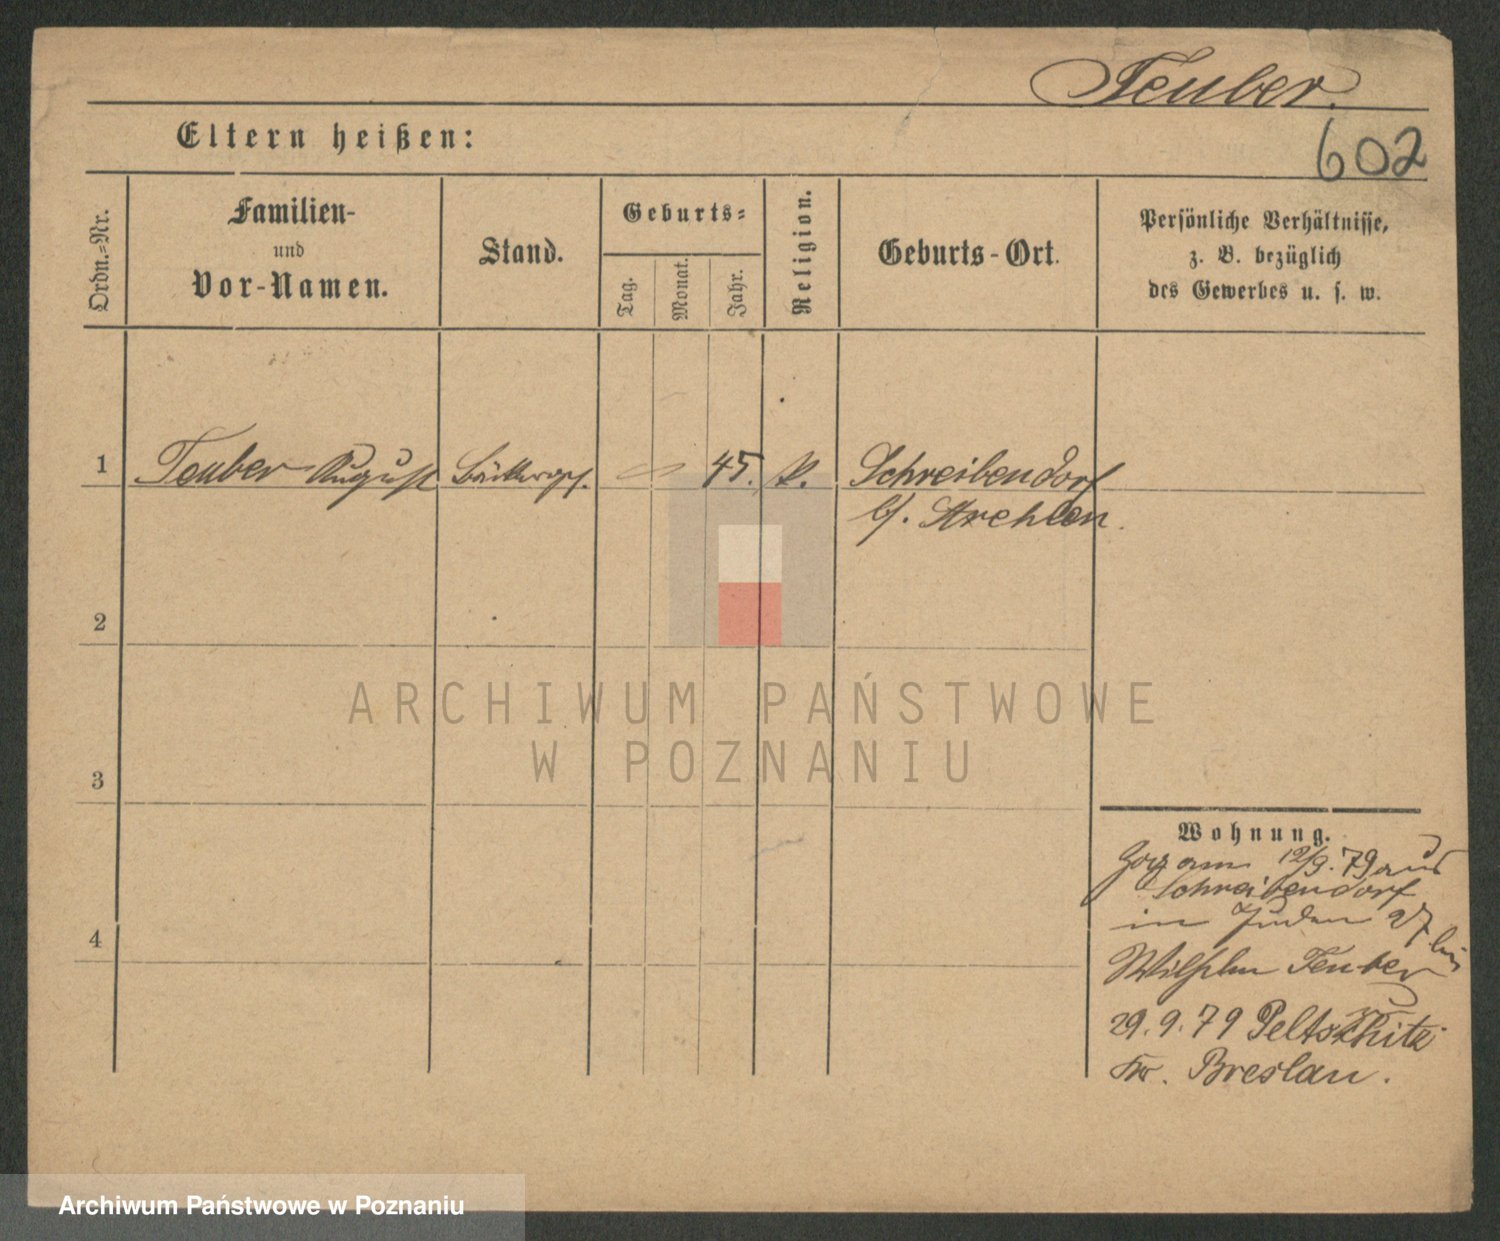 Teuber.
602
Eltern heißen:
Ordn.-Nr.
Familien-
und
Vor-Namen.
Stand.
Geburts-
Tag.
Monat.
Jahr.
Religion.
Geburts-Ort.
Persönliche Verhältnisse,
z. B. bezüglich
des Gewerbes u. s. w.
1 Teuber August 45. k. Schreibendorf
b/. Strehlen.
2
3
4
ARCHIWUM PAŃSTWOWE
W POZNANIU
Wohnung.
Zog am 12/9. 79 aus
Schreibendorf
in 27 bei
Wilhelm Teuber
29.9.79 Peltschütz
Kr. Breslau.
Archiwum Państwowe w Poznaniu